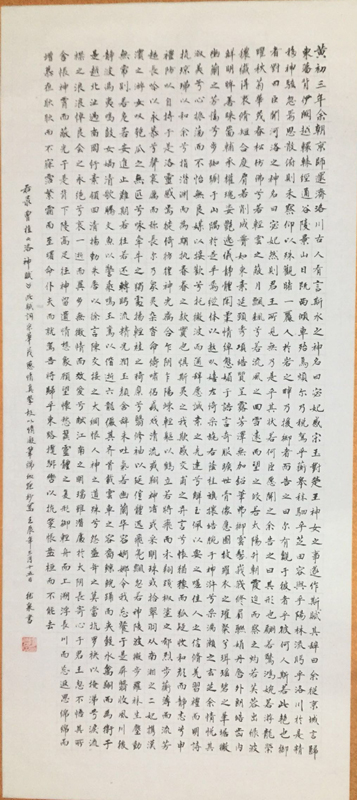 黄初三年余朝京師還濟洛川古人有言斯水之神名曰宓妃感宋玉對楚王神女之事遂作斯賦其辭曰余從京域言歸
東藩背伊闕越轘轅經通谷陵景山日既西傾車殆馬煩爾乃税駕乎蘅皋秣駟乎芝田容與乎陽林流眄乎洛川於是精
移神駭忽焉思散俯則未察仰以殊觀睹一麗人於岩之畔乃援御者而告之曰爾有覿於彼者乎彼何人斯若此之艷也御
者對曰臣聞河洛之神名曰宓妃然則君王所見無乃是乎其狀若何臣願聞之余告之曰其形也翩若驚鴻婉若游龍榮
曜秋菊華茂春松髣髴兮若輕雲之蔽月飄颻兮若流風之回雪遠而望之皎若太陽升朝霞迫而察之灼若芙蓉出淥波
襛纖得衷修短合度肩若削成腰如約素延頸秀項皓質呈露芳澤無加鉛華弗御雲髻峨峨修眉聯娟丹唇外朗皓齒內
鮮明眸善睞靨輔承權瑰姿艷逸儀靜體閑柔情綽態媚於語言奇服曠世骨像應圖披羅衣之璀粲兮珥瑤碧之華琚
幽蘭之芳藹兮步踟躕於山隅於是忽焉縱體以遨以嬉左倚采旄右蔭桂旗攘皓腕於神滸兮采湍瀨之玄芝余情悅其
淑美兮心振蕩而不怡無良媒以接歡兮托微波而通辭願誠素之先達兮解玉佩以要之嗟佳人之信修羌習禮而明詩
抗瓊珶以和余兮指潛淵而為期執眷眷之款實兮懼斯靈之我欺感交甫之棄言兮悵猶豫而狐疑收和顏而靜志兮申
禮防以自持於是洛靈感焉徙倚彷徨神光離合乍陰乍陽竦輕軀以鶴立若將飛而未翔踐椒塗之郁烈步蘅薄而流芳
超長吟以永慕兮聲哀厲而彌長爾乃眾靈雜沓命儔嘯侶或戲清流或翔神渚或采明珠或拾翠羽從南湘之二妃攜漢
濱之游女嘆匏瓜之無匹兮詠牽牛之獨處揚輕袿之猗靡兮翳修袖以延佇體迅飛鳧飄忽若神陵波微步羅襪生塵動
無常則若危若安進止難期若往若還轉眄流精光潤玉顏含辭未吐氣若幽蘭華容婀娜令我忘餐於是屏翳收風川後
靜波馮夷鳴鼓女媧清歌騰文魚以警乘鳴玉鸞以偕逝六龍儼其齊首載雲車之容裔鯨鯢踴而夾轂水禽翔而為衛於
是越北沚過南岡紆素領回清揚動朱唇以徐言陳交接之大綱恨人神之道殊兮怨盛年之莫當抗羅袂以掩涕兮淚流
襟之浪浪悼良會之永絕兮哀一逝而異鄉無微情以效愛兮獻江南之明璫雖潛處於太陰長寄心於君王忽不悟其所
舍悵神霄而蔽光於是背下陵高足往神留遺情想像顧望懷愁冀靈體之復形御輕舟而上溯浮長川而忘返思綿綿而
增慕夜耿耿而不寐霑繁霜而至曙命僕夫而就駕吾將歸乎東路攬騑轡以抗策悵盤桓而不能去
右錄曹植之洛神賦